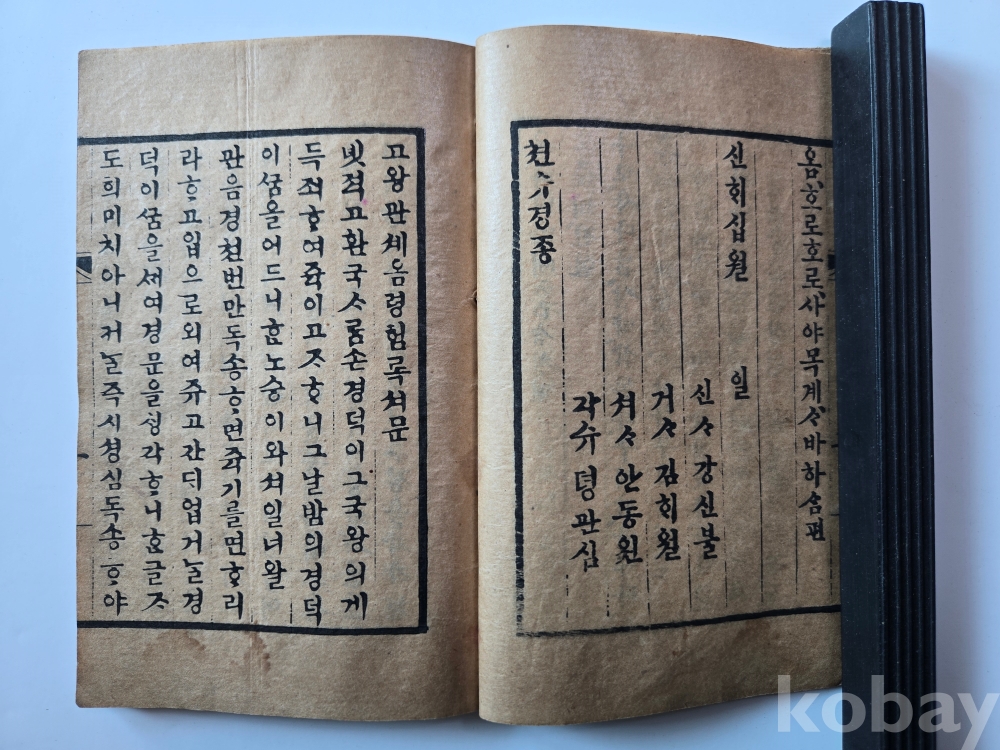 옴호로호로사야목계ᄉᆞ바하ᄉᆞᆷ편
신회십월 일
신ᄉᆞ 강신불
거ᄉᆞ 김회월
셔ᄉᆞ 안동원
각슈 뎡관심
천슈경종
고왕관셰음령험록셔문
녯적고환국ᄉᆞᄅᆞᆷ손경덕이그국왕의게
득죄ᄒᆞ여쥭이고ᄌᆞᄒᆞ니그날밤의경덕
이ᄭᅮᆷ을어드니ᄒᆞᆫ노승이와셔일너왈
관음경천번만독송ᄒᆞ면쥭기를면ᄒᆞ리
라ᄒᆞ고입으로외여쥬고간ᄃᆡ업거ᄂᆞᆯ경
덕이ᄭᅮᆷ을ᄭᆡ여경문을ᄉᆡᆼ각ᄒᆞ니ᄒᆞᆫ글ᄌᆞ
도희미치아니커ᄂᆞᆯ즉시경심독송ᄒᆞ야
kobay